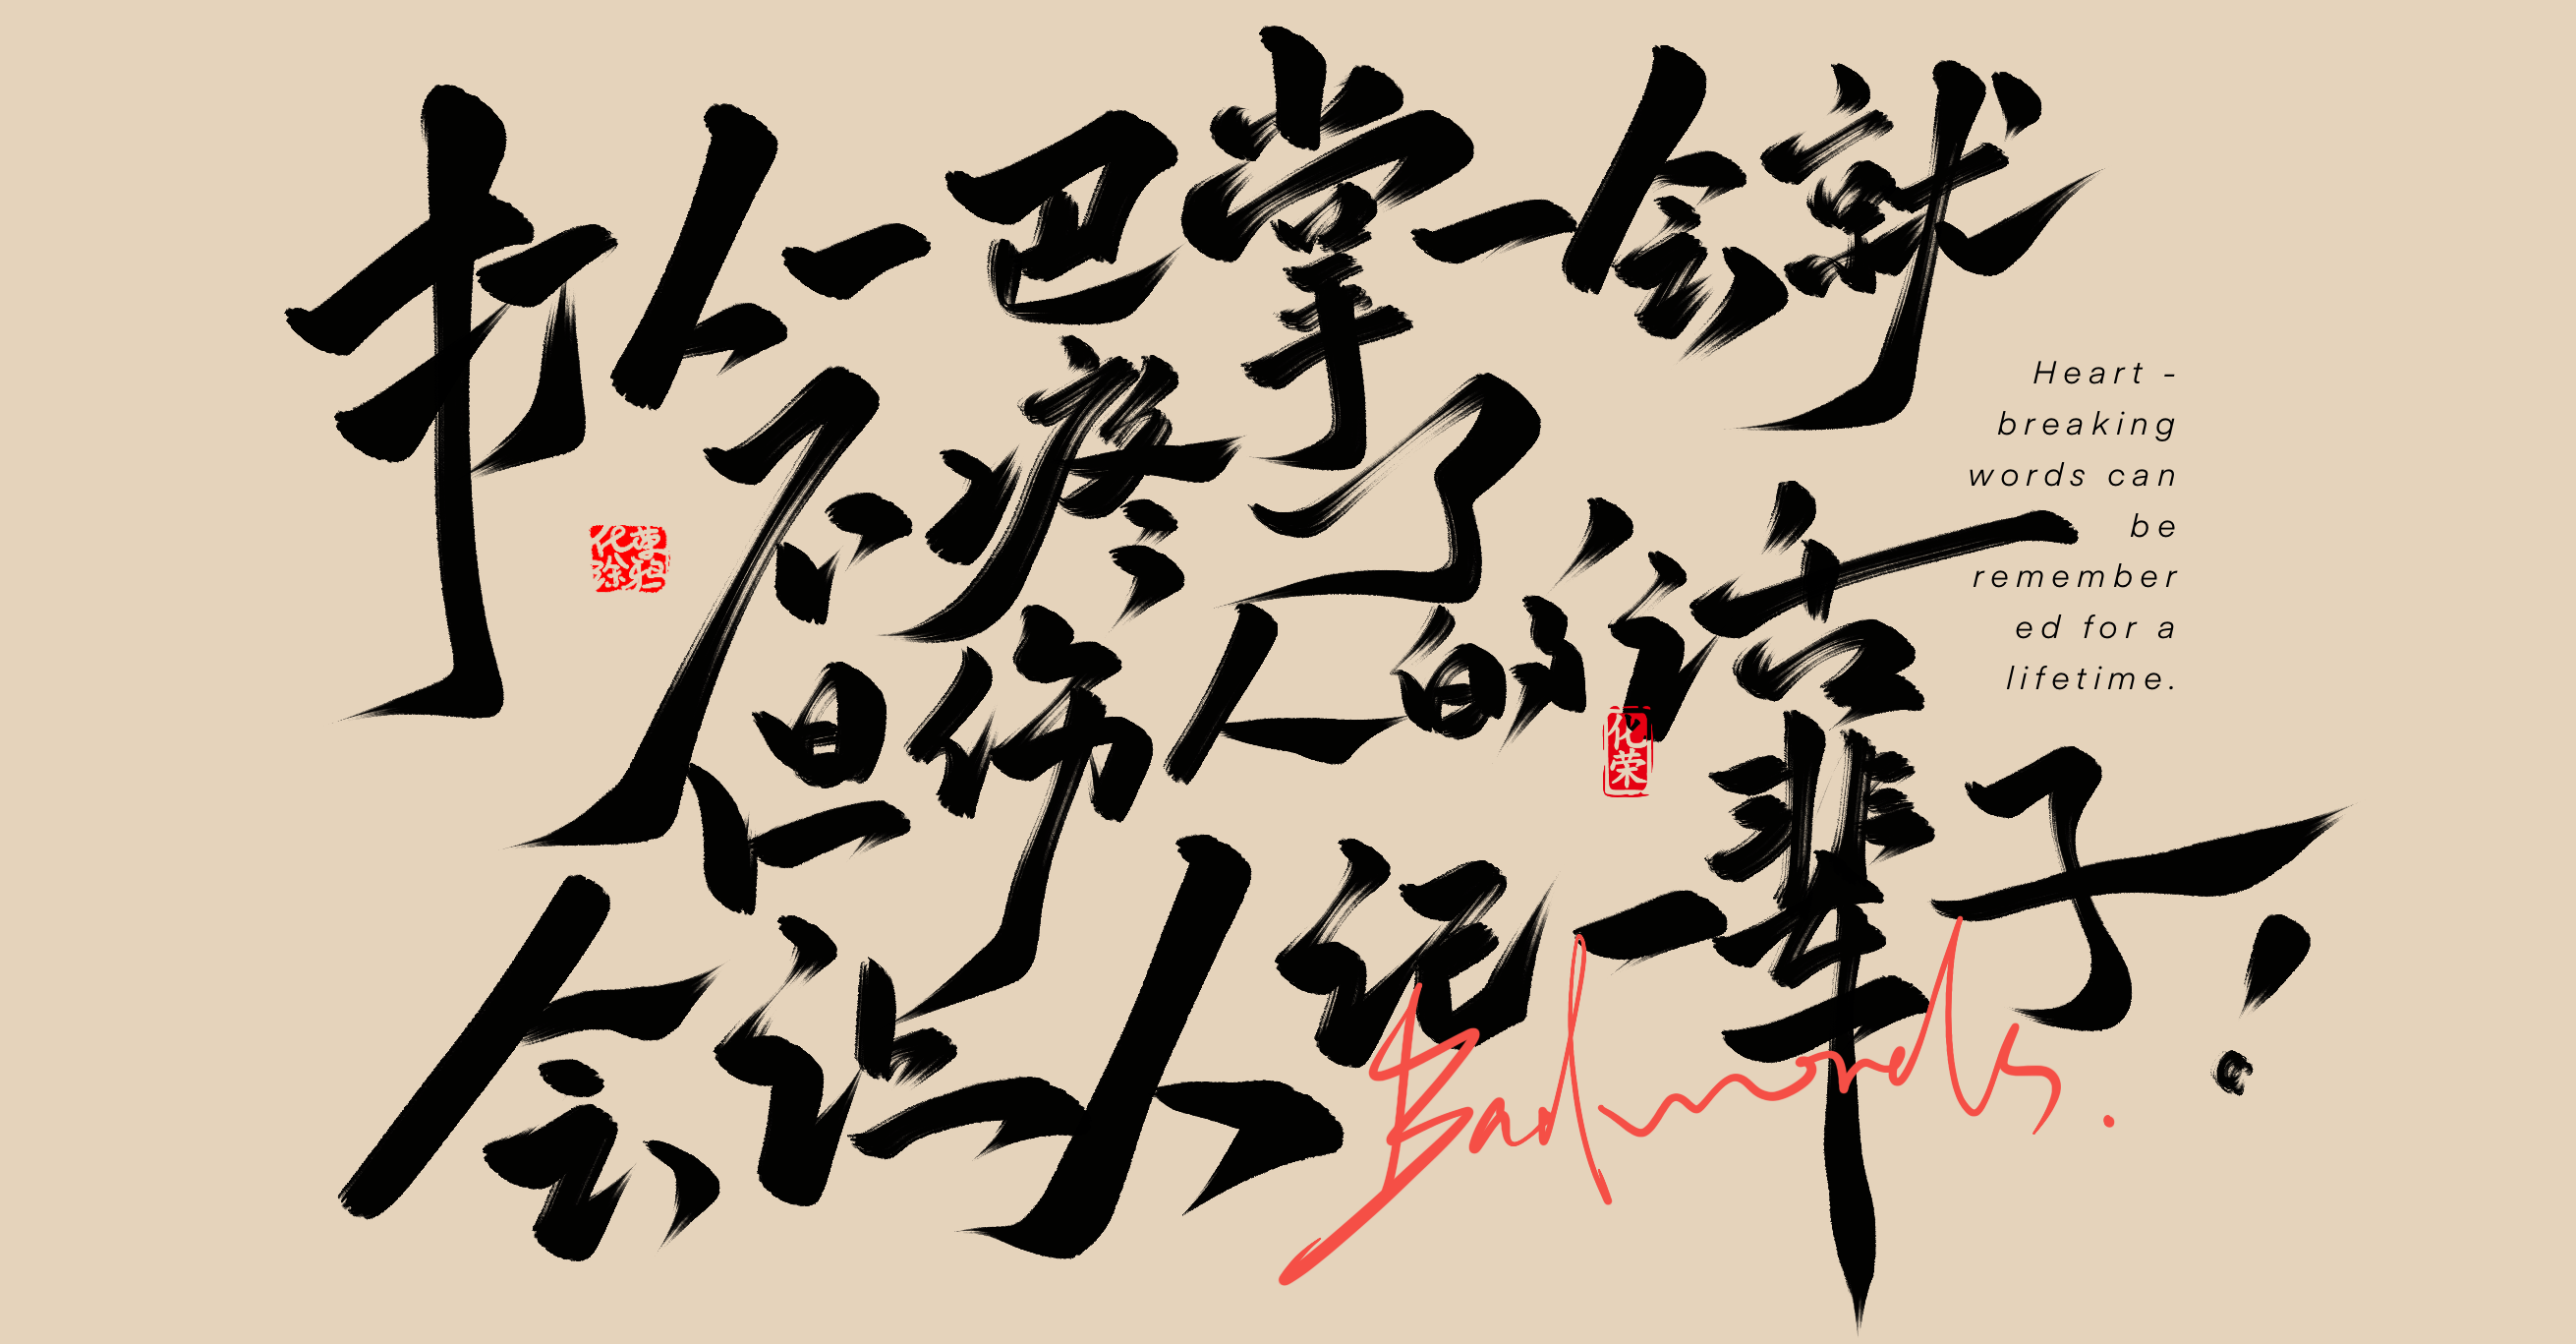 打人一巴掌一会就
不疼了
但伤人的话
会让人记一辈子！
Heart -
breaking
words can
be
remember
ed for a
lifetime.
化荣
Badwords.